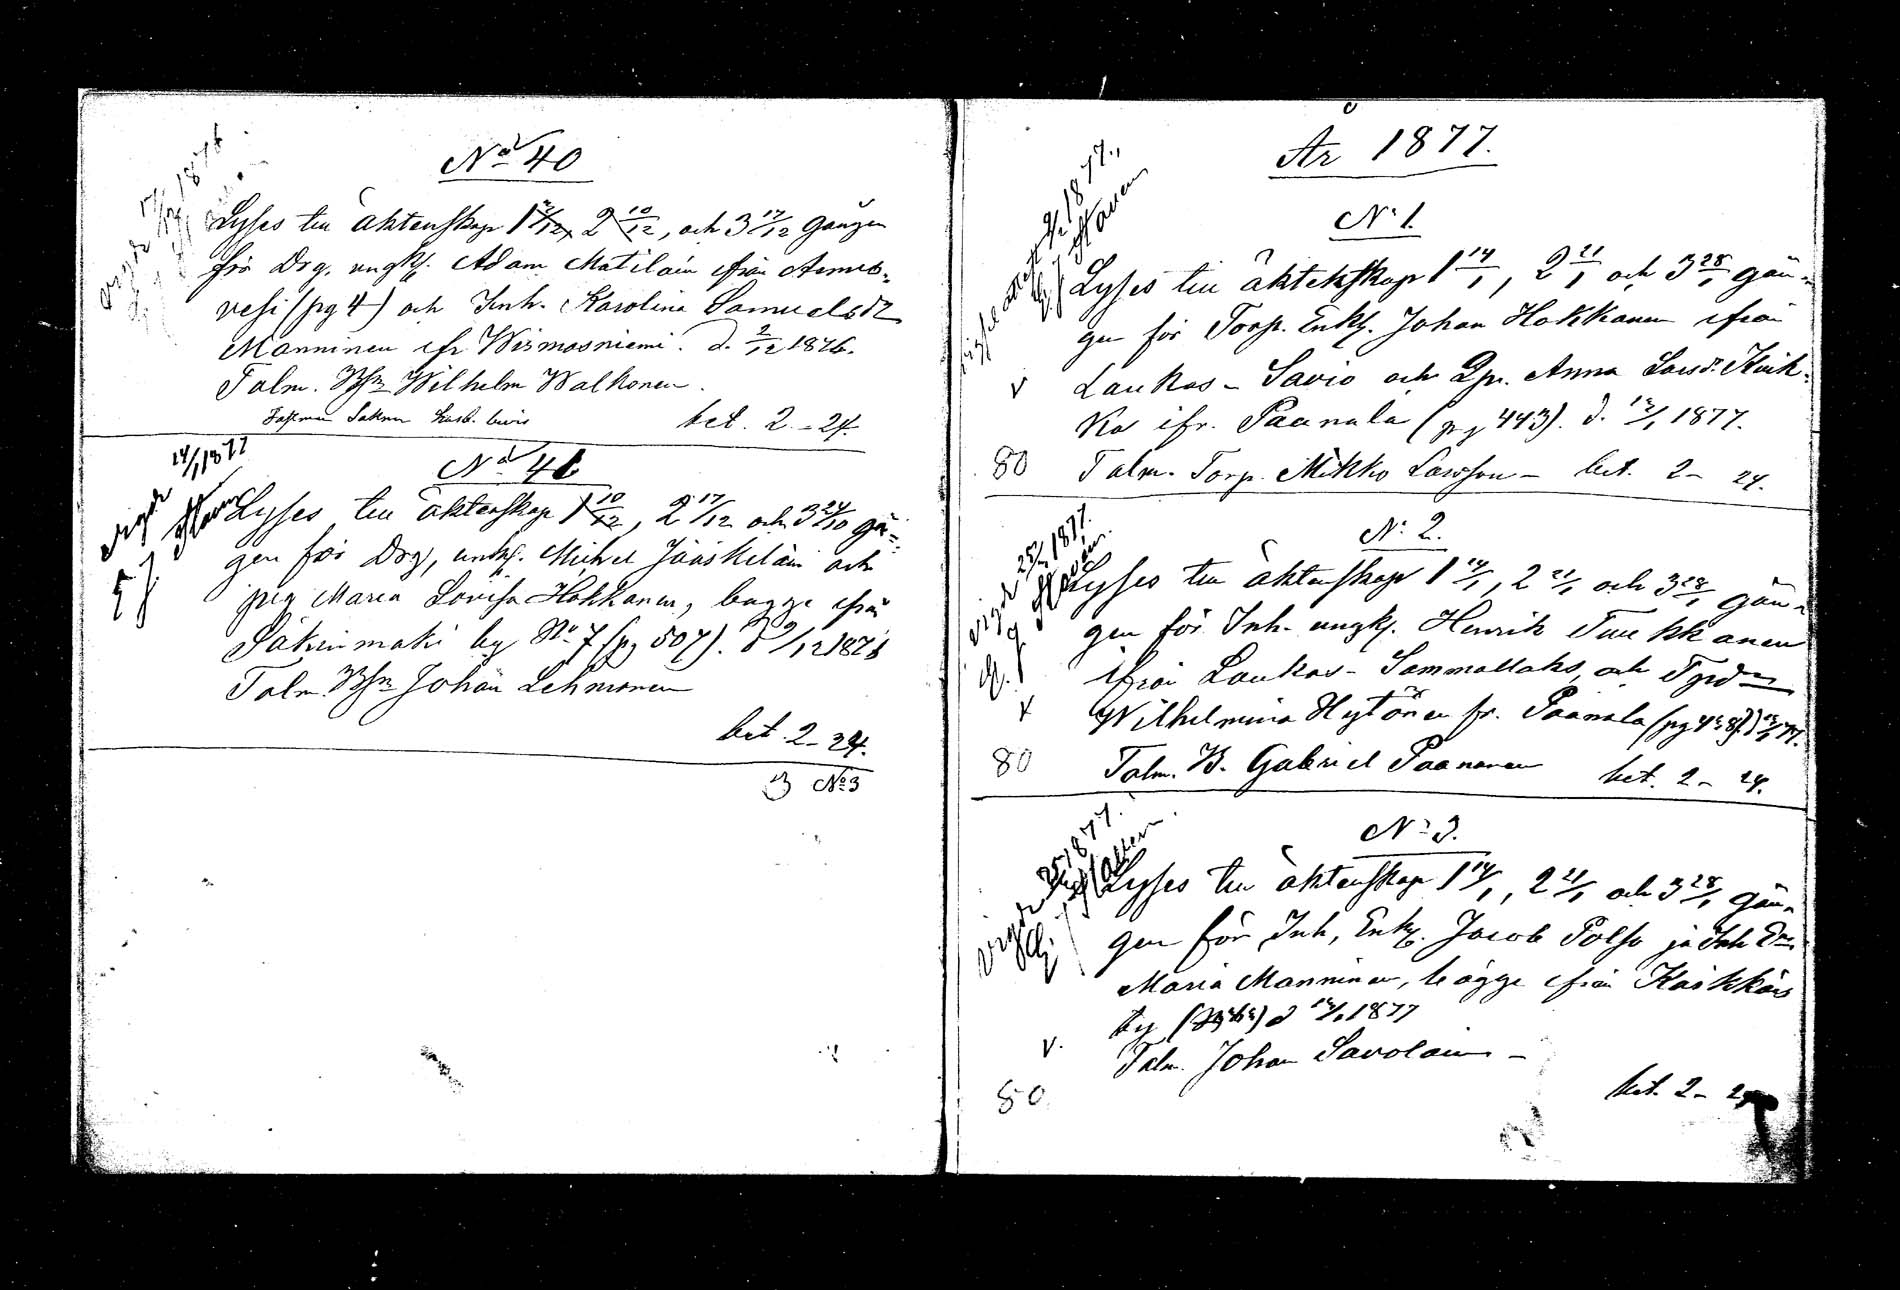 No 40
Lyses till äktenskap 1 3/12, 2 10/12, och 3 17/12 gången
för Drg. ungk. Adam Matilain ifrån Armis-
vesi (pg 4) och Inh. Karolina Samuelsdr
Manninen ifr Wirmasniemi. d. 2/12 1876.
Talm. Bsn Wilhelm Walkonen.
bet. 2 - 24.
vigde 14/1 1877
No 41
Lyses till äktenskap 1 10/12, 2 17/12 och 3 24/10 gån-
gen för Drg, unkg. Michel Jääskeläin och
pig Maria Lovisa Hokkanen, bägge ifrån
by No 7 (pg 507). d 9/12 1876
Talm. Bsn Johan Lehmonen
bet. 2 - 24.
3 No 3
År 1877.
No 1.
Lyses till äktekskap 1 14/1, 2 21/1 och 3 28/1 gån-
gen för Torp. Enk. Johan Hokkanen ifrån
v Laukas - Savio och Anna Larsdr. Kuik-
ka ifr. Paanala (pg 443). d. 13/1 1877.
80 Talm. Torp. Mikko Larsson - bet. 2 - 24.
vigde 1877.
No 2.
Lyses till äktenskap 1 14/1, 2 21/1 och 3 28/1 gån-
gen för Inh. ungk. Henrik Tuukkanen
ifrån Laukas - Sammallaks, och
Wilhelmina Hytönen fr. Paanala
80 Talm. B. Gabriel Paananen bet. 2 - 24.
vigde 1877.
No 3.
Lyses till äktenskap 1 14/1, 2 21/1 och 3 28/1 gån-
gen för Inh, Enk. Jacob Polso ja Inh
Maria Manninen, bägge ifrån Kärkkäis
by d 13/1 1877
v. Talm. Johan Savolain -
80 bet. 2 - 24